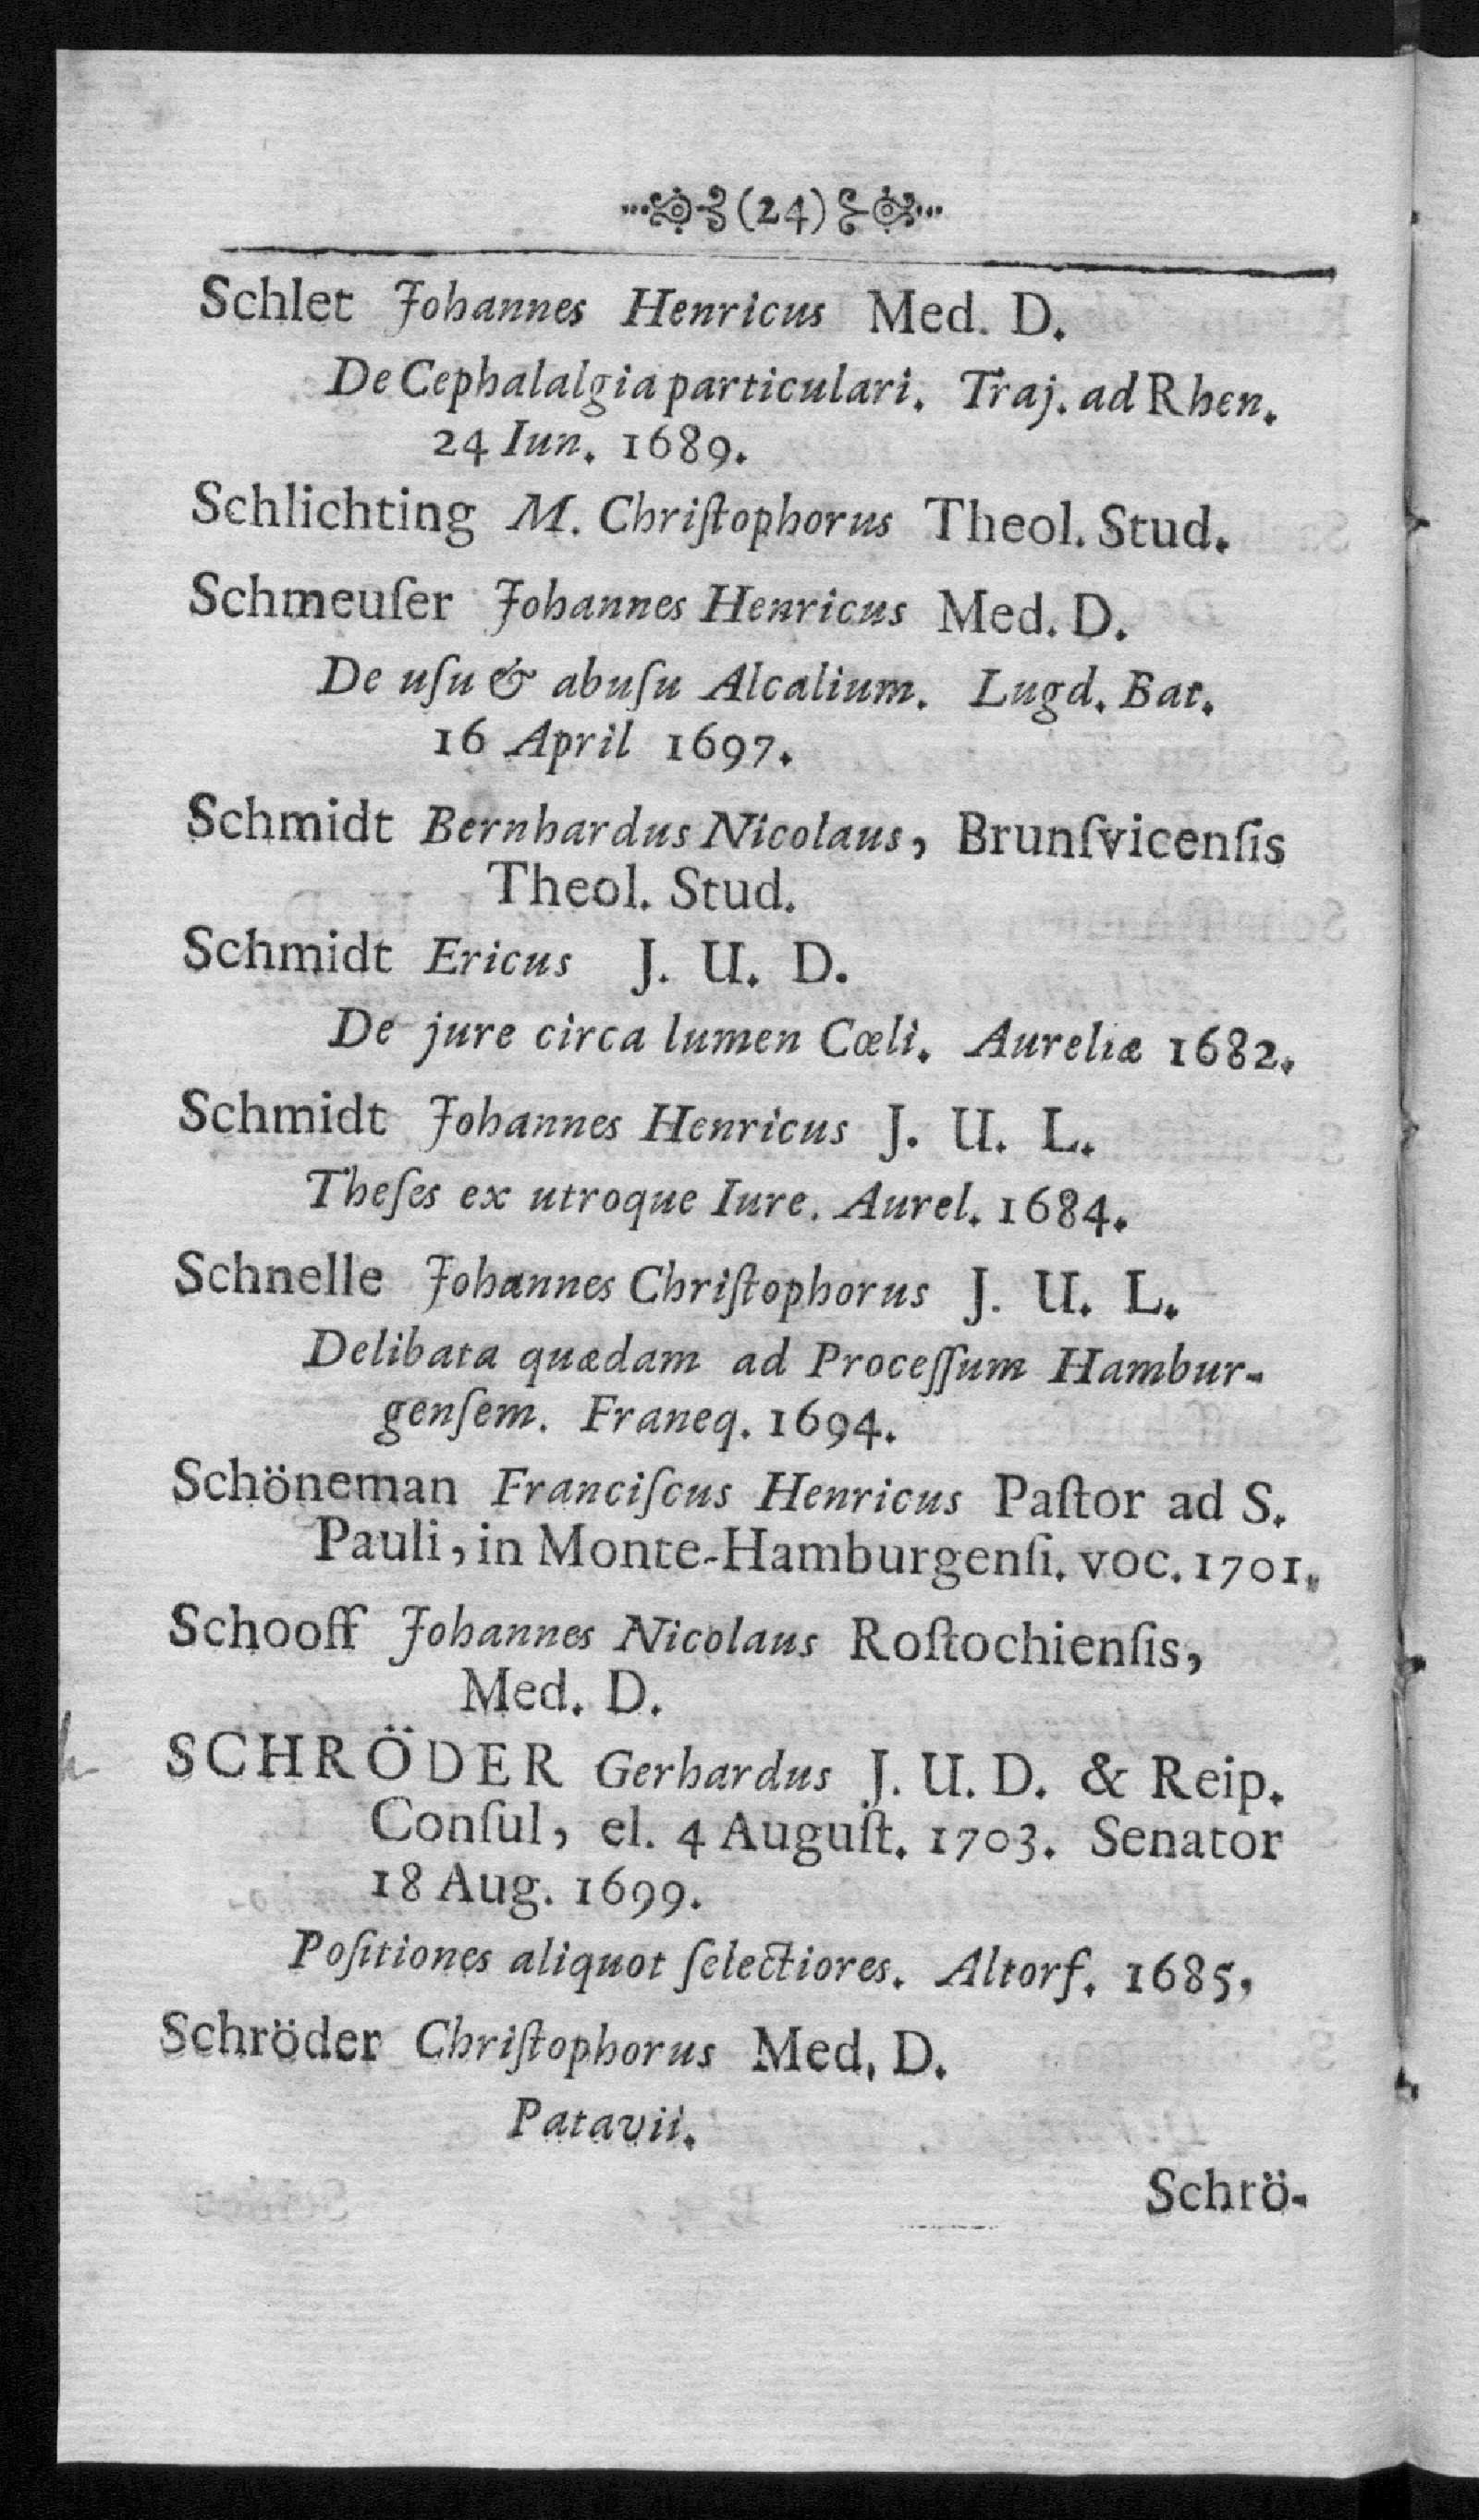 (24)
Schlet Johannes Henricus Med. D.
De Cephalalgia particulari. Traj. ad Rhen.
24 Iun. 1689.
Schlichting M. Chriſtophorus Theol. Stud.
Schmeuſer Johannes Henricus Med. D.
De uſu & abuſu Alcalium. Lugd. Bat.
16 April 1697.
Schmidt Bernhardus Nicolaus, Brunſvicenſis
Theol. Stud.
Schmidt Ericus J. U. D.
De jure circa lumen Cœli. Aureliæ 1682.
Schmidt Johannes Henricus J. U. L.
Theſes ex utroque Iure. Aurel. 1684.
Schnelle Johannes Chriſtophorus J. U. L.
Delibata quædam ad Proceſſum Hambur-
genſem. Franeq. 1694.
Schöneman Franciſcus Henricus Paſtor ad S.
Pauli, in Monte-Hamburgenſi. voc. 1701.
Schooff Johannes Nicolaus Roſtochienſis,
Med. D.
SCHRÖDER Gerhardus J. U. D. & Reip.
Conſul, el. 4 Auguſt. 1703. Senator
18 Aug. 1699.
Poſitiones aliquot ſelectiores. Altorf. 1685,
Schröder Chriſtophorus Med. D.
Patavii.
Schrö-